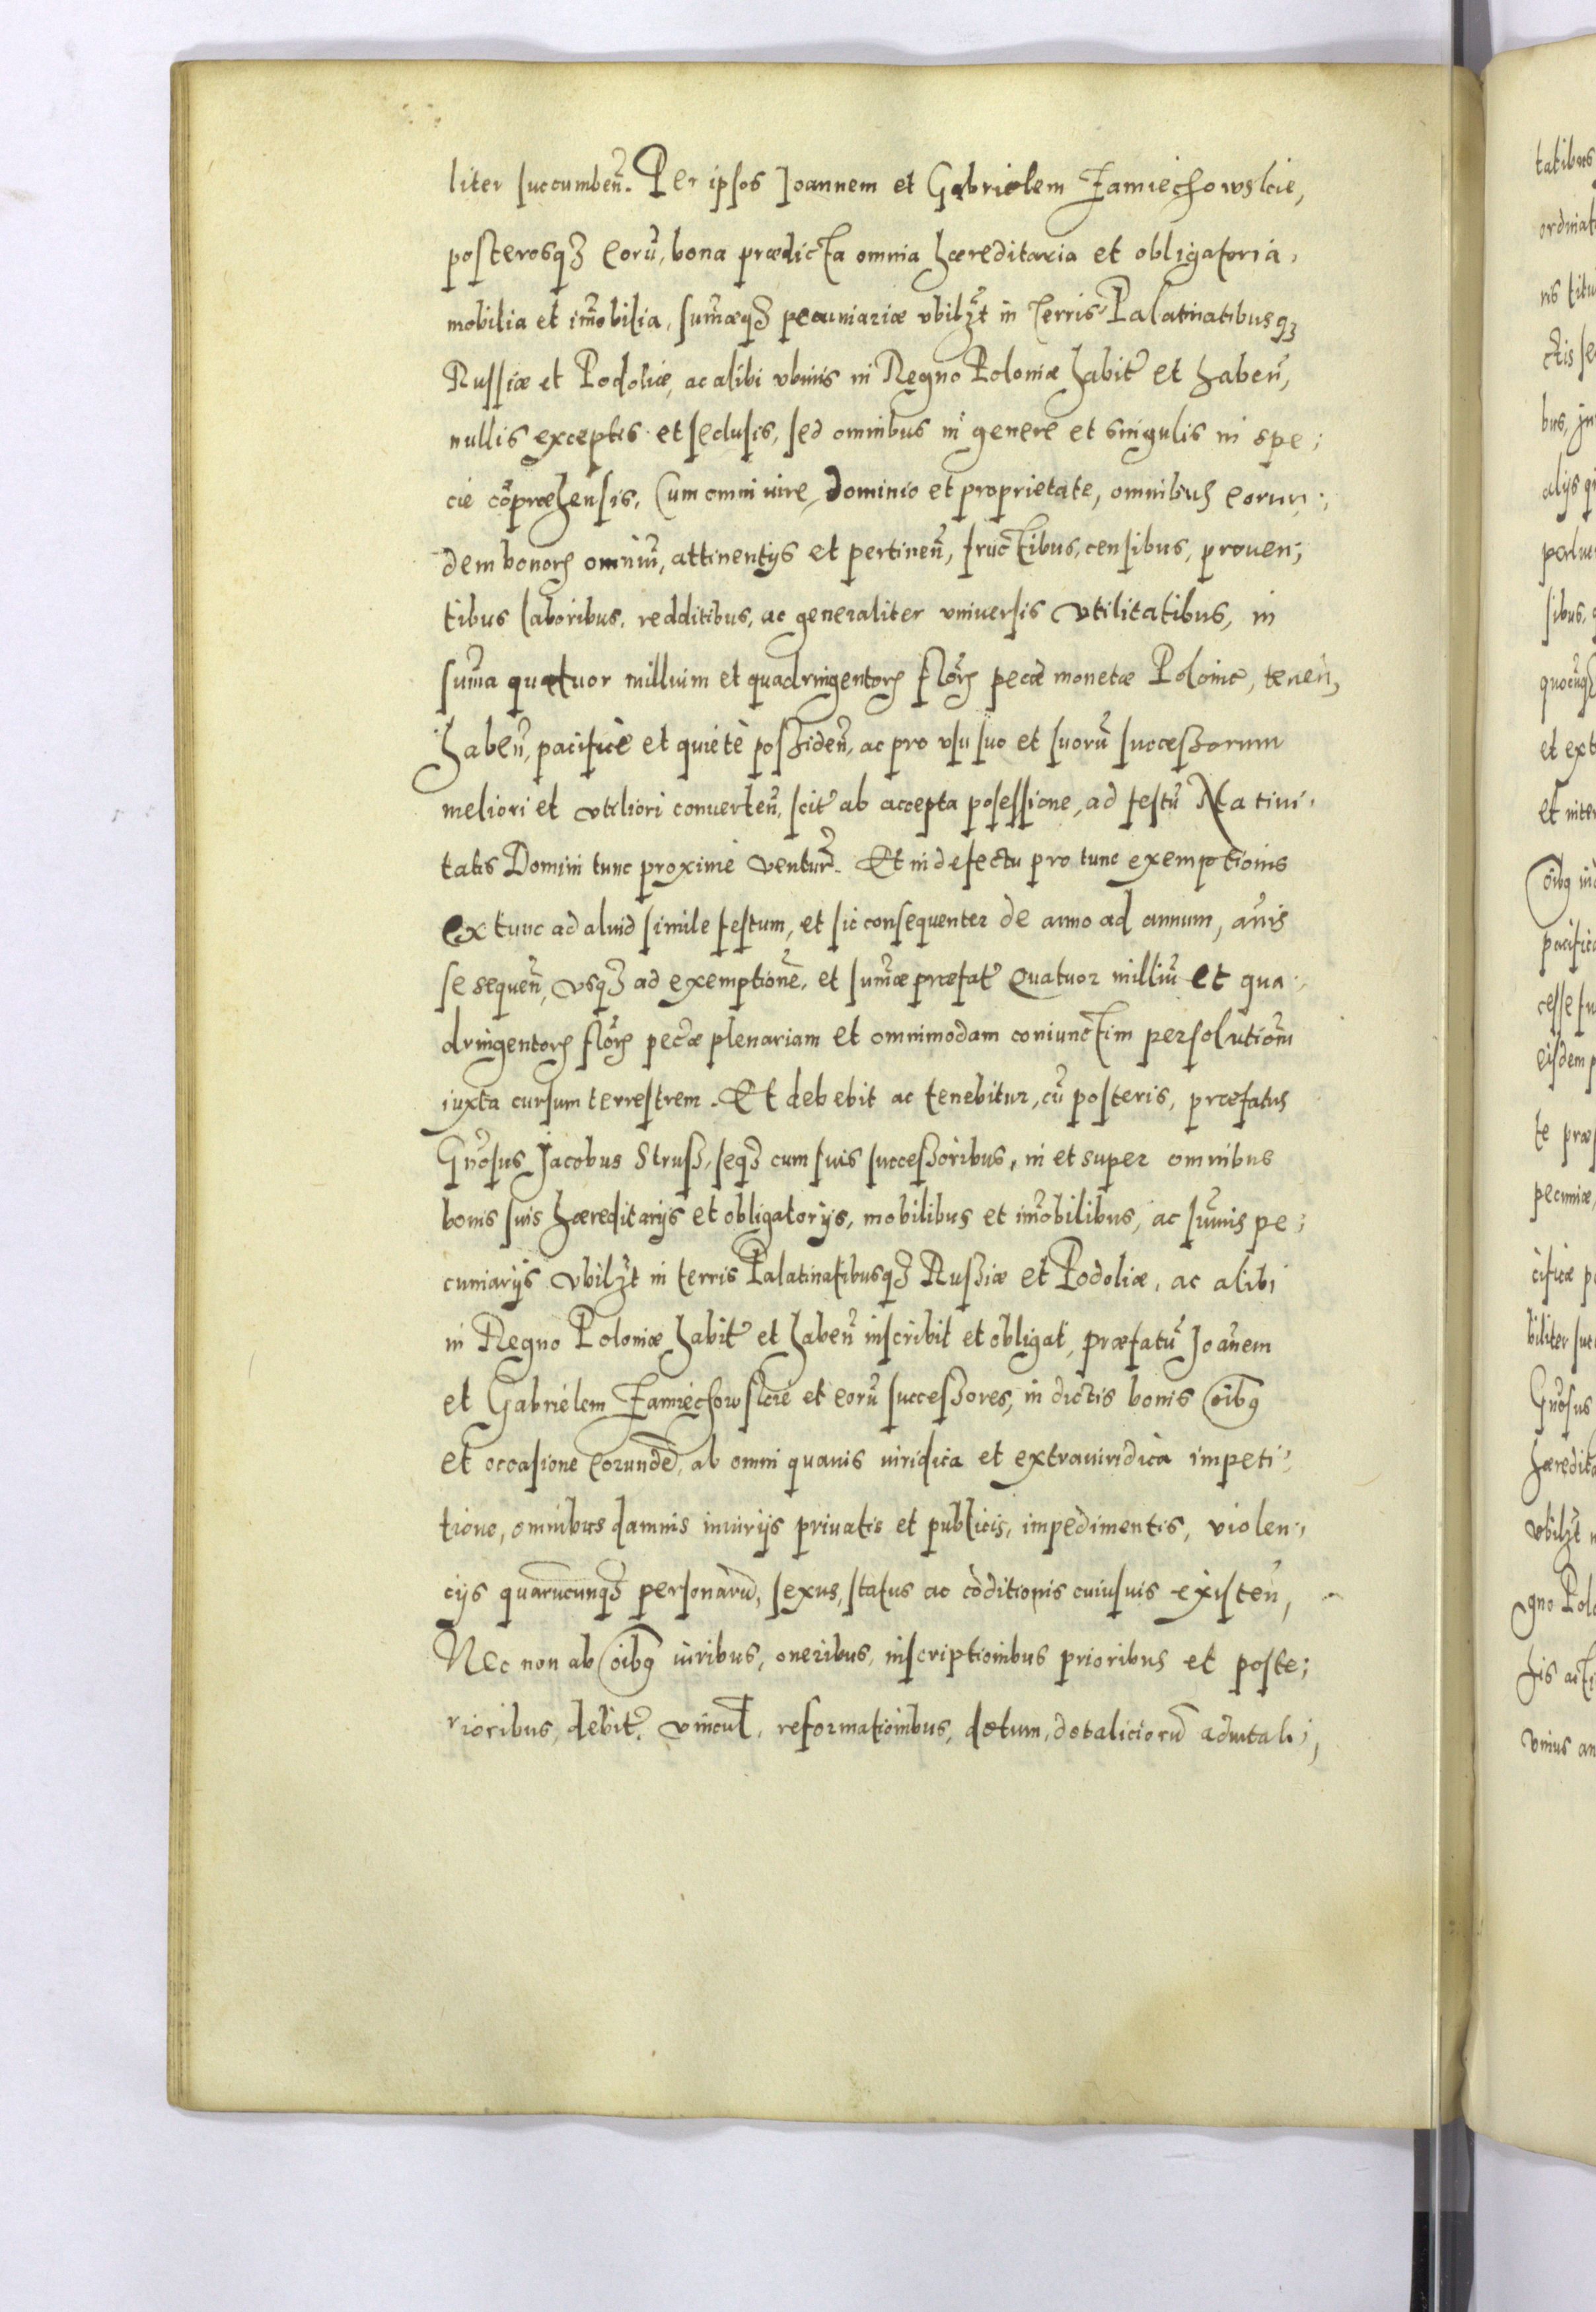 liter succumbeñ. Per ipsos Joannem et Gabrielem Zamiechowskie,
posterosqꝫ eorũ, bona prædicta omnia hæreditaria et obligatoria,
mobilia et im̃obilia, sum̃æqꝫ pecuniariæ vbilꝫt in terris Palatinatibusqꝫ
Russiæ et Podoliæ, ac alibi vbiuis in Regno Poloniæ habit̃ et habeñ,
nullis exceptis et seclusis, sed omnibus in genere et singulis in spe;
cie cõpræhensis. Cum omni iure, dominio et proprietate, omnibus eorun;
dem bonorꝫ omniũ, attinentijs et pertineñ, fructibus, censibus, prouen;
tibus laboribus, redditibus, ac generaliter vniuersis vtilitatibus, in
sum̃a quatuor millium et quadringentorꝫ flõrꝫ pecæ monetæ Poloniæ, teneñ,
habeñ, pacificè et quietè poßideñ, ac pro vsu suo et suorũ succeßorum
meliori et vtiliori conuerteñ, scit̃ ab accepta posessione, ad festũ Natiui,
tatis Domini tunc proximè ventur̃. Et in defectu pro tunc exemptionis
ex tunc ad aliud simile festum, et sic consequenter de anno ad annum, añis
se sequeñ, vsqꝫ ad exemptionẽ, et sum̃æ præfat̃ quatuor milliũ et qua,
dringentorꝫ flõrꝫ pec̃æ plenariam et omnimodam coniunctim persolutiõm
iuxta cursum terrestrem. Et debebit ac tenebitur, cũ posteris, præfatus
Gñosus Jacobus Struß, seqꝫ cum suis succeßoribus, in et super omnibus
bonis suis hæreditarijs et obligatorijs, mobilibus et im̃obilibus, ac sum̃is pe;
cuniarijs vbilꝫt in terris Palatinatibusqꝫ Rußiæ et Podoliæ, ac alibi
in Regno Poloniæ habit̃ et habeñ inscribit et obligat, præfatũ Joãnem
et Gabrielem Zamiechowskie et eorũ succeßores, in dictis bonis oĩbꝫ
et occasione eorundẽ, ab omni quauis iuridica et extraiuridica impeti,
tione, omnibus damnis iniurijs priuatis et publicis, impedimentis, violen,
cijs quarũcunqꝫ personarũ, sexus, status ac cõditionis cuiusuis existeñ,
Nec non ab oĩbꝫ iuribus, oneribus, inscriptionibus prioribus et poste;
rioribus, debit̃, vincul̃, reformationibus, dotum, dotaliciorũ aduitali,